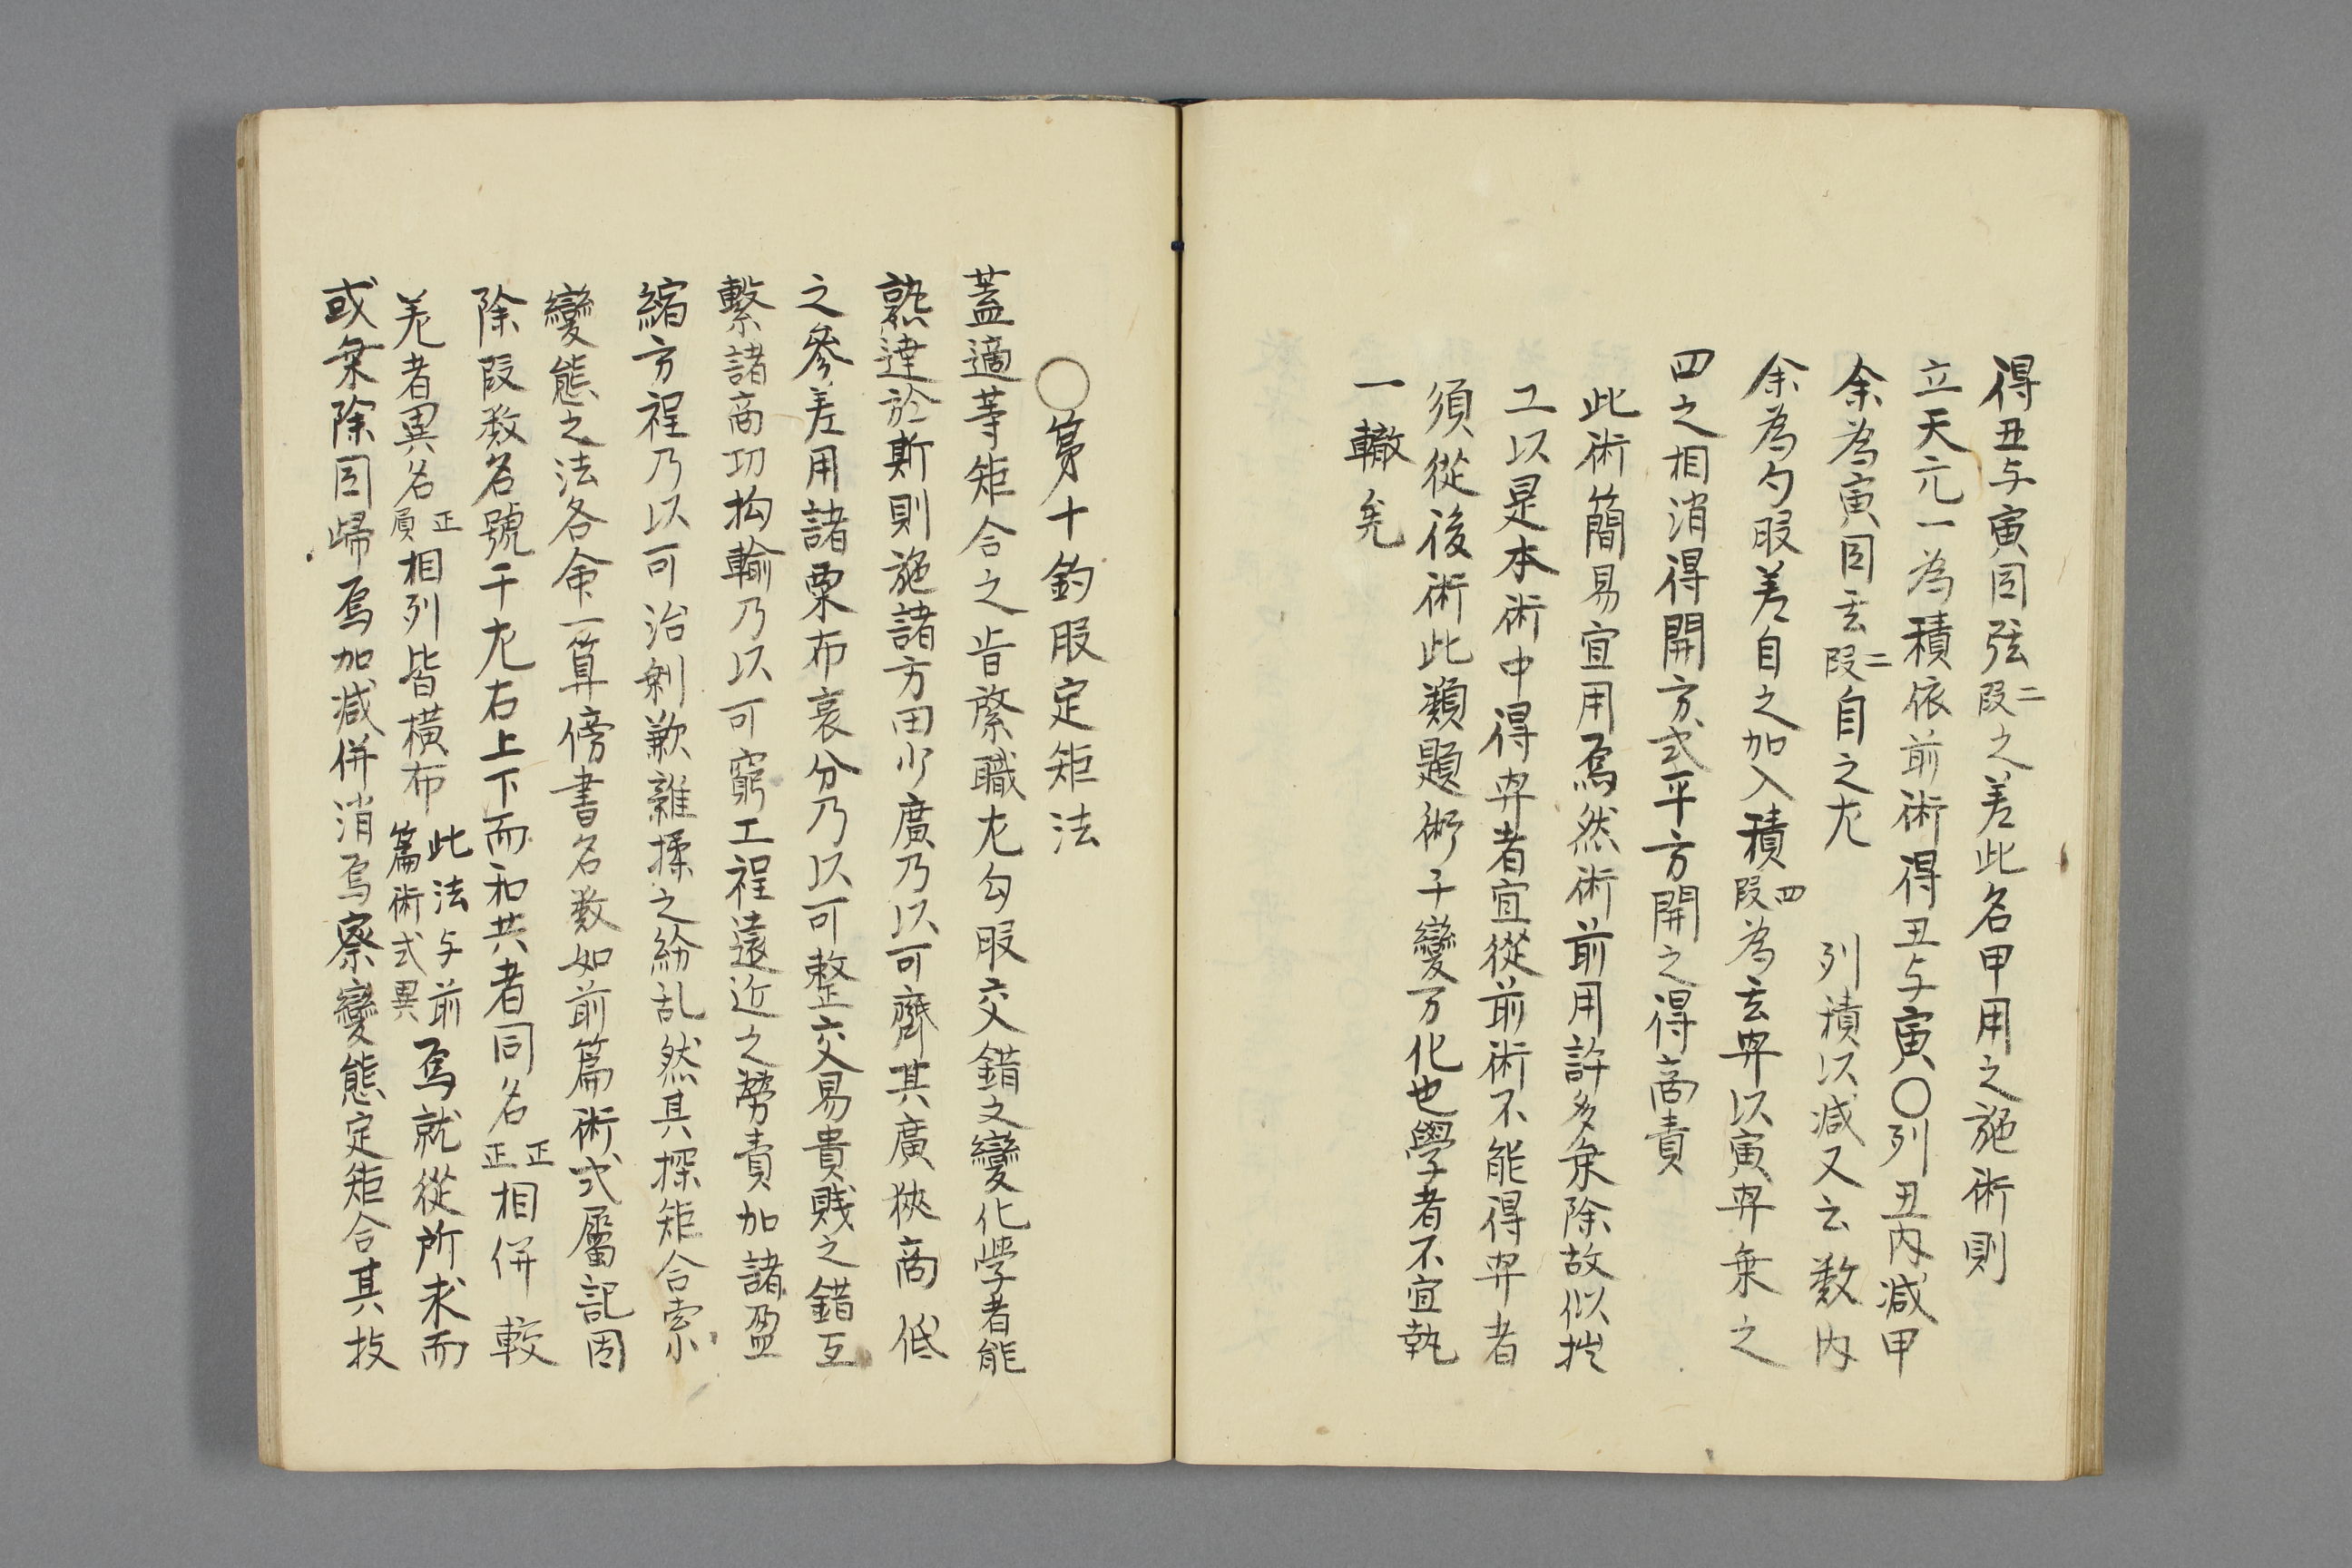 得丑与寅因弦二段之差此名甲用之施術則
立天元一為積依前術得丑与寅〇列丑内減甲
余為寅因玄二段自之尤　列積以減又云数内
余為勾股差自之加入積四段為玄羃以寅羃乗之
四之相消得開方式平方開之得商責
此術簡易宜用焉然術前用許多乗除故似拙
工以是本術中得羃者宜從前術不能得羃者
須從後術此類題術千變万化也學者不宜執
一轍矣
〇第十釣股定矩法
蓋適等矩合之旨檃職尤勾股交錯之變化学者能
熟達於斯則施諸方田少廣乃以可齊其廣狹商低
之參差用諸粟布衰分乃以可整交易貴賤之錯互
繋諸商功均輸乃以可窮工程遠近之勞責加諸盈
縮方程乃以可治剰歉雜揉之紛乱然其探矩合索
變態之法各命一算傍書名数如前篇術式屬記因
除段数名號于尤右上下而和共者同名正正相併較
差者異名正負相列皆横布此法与前篇術式異焉就從所求而
或乗除因歸焉加減併消焉察變態定矩合其技